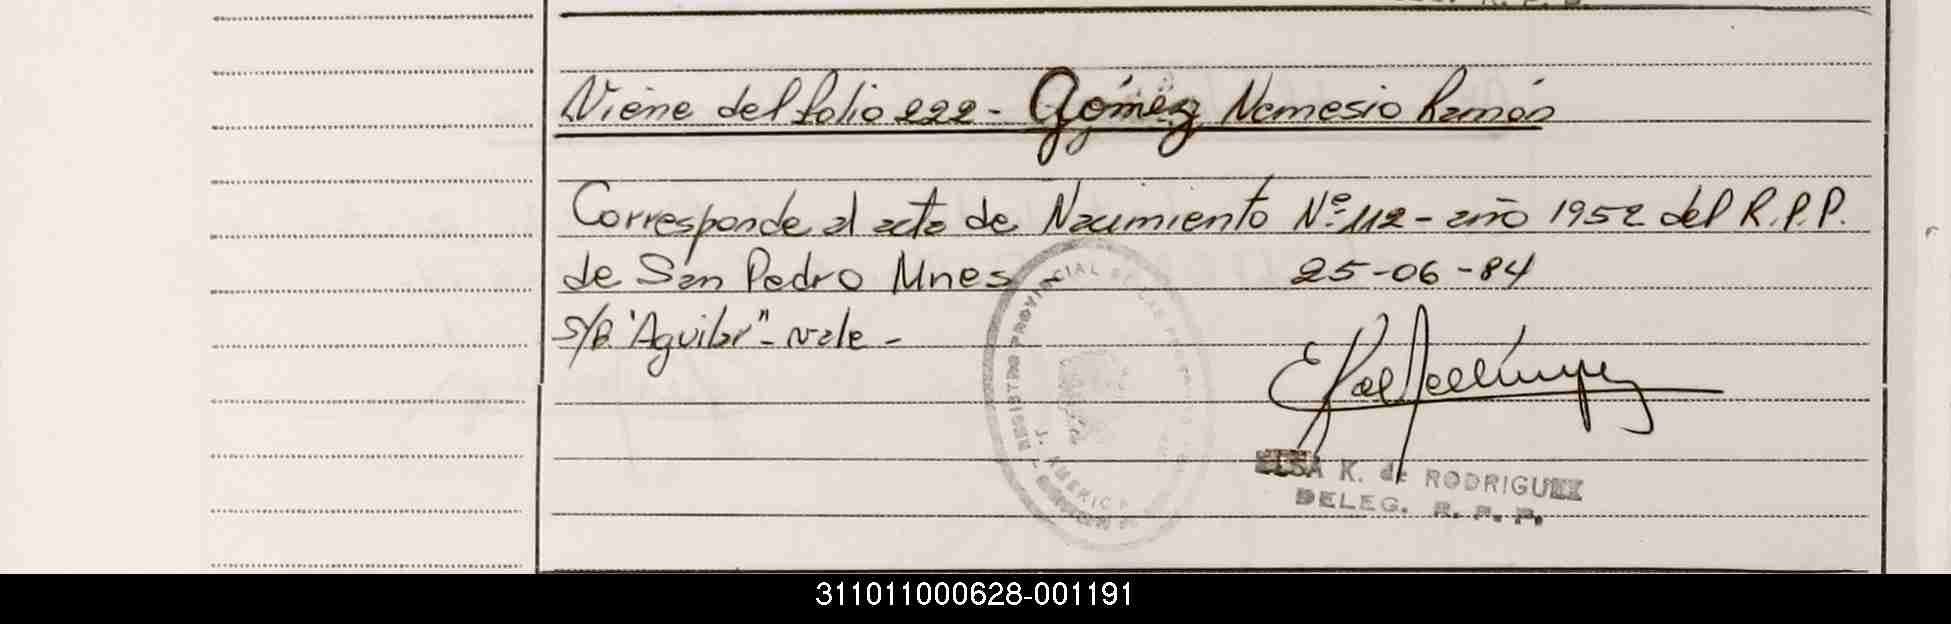 Viene del folio 222 - Gómez Nemesio Ramón
Corresponde al acta de Nacimiento Nº 112 - año 1952 del R.P.P.
de San Pedro Mnes 25-06-84
S/B "Aguilar" - vale -
REGISTRO PROVINCIAL DE LAS PERSONAS
J. AMERICA
ELSA K. de RODRIGUEZ
DELEG. R. P. P.
311011000628-001191